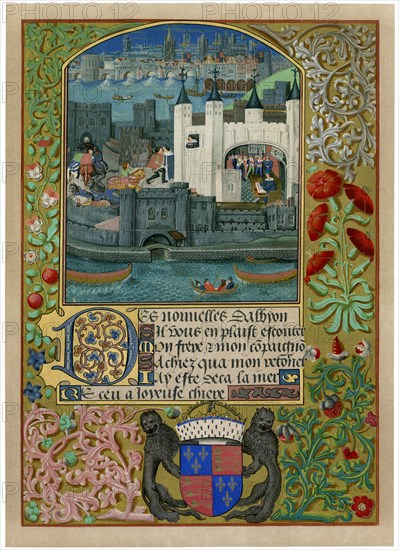 Des nouvelles Dalbyon
Sil vous en plaist escouter
Mon frere & mon compaignō
Sachiez qua mon retorner
Iay este deca la mer
Receu a Ioyeuse chiere